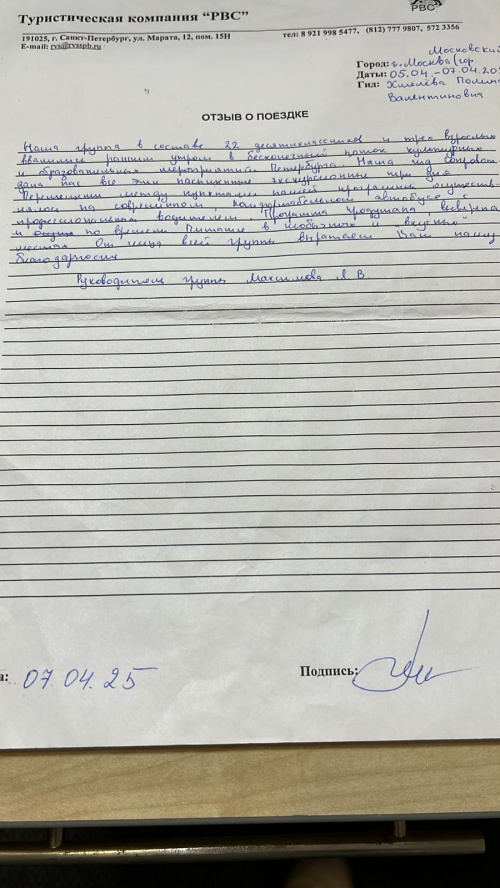 РВС
Туристическая компания “РВС”
191025, г. Санкт-Петербург, ул. Марата, 12, пом. 15Н
тел: 8 921 998 5477, (812) 777 9807, 572 3356
E-mail: rvs@rvsspb.ru
Московский
Город: г. Москва (гор.
Даты: 05.04.-07.04.20
Гид: Полин
Валентинович
ОТЗЫВ О ПОЕЗДКЕ
Наша группа в составе 22 десятиклассников и трех взрослых
ввалились ранним утром в бесконечный поток культурных
и образовательных мероприятий Петербурга. Наша гид сопровож
дала нас все эти насыщенные экскурсионные три дня
Перемещения между пунктами нашей программы осуществ
лялось на современном комфортабельном автобусе с
профессиональным водителем. Программа продумана,
и по времени Питание в необычных и вкусных
местах От лица всей группы выражаем Вам нашу
благодарность
Руководитель группы Максимова Л. В.
а: 07.04.25
Подпись: